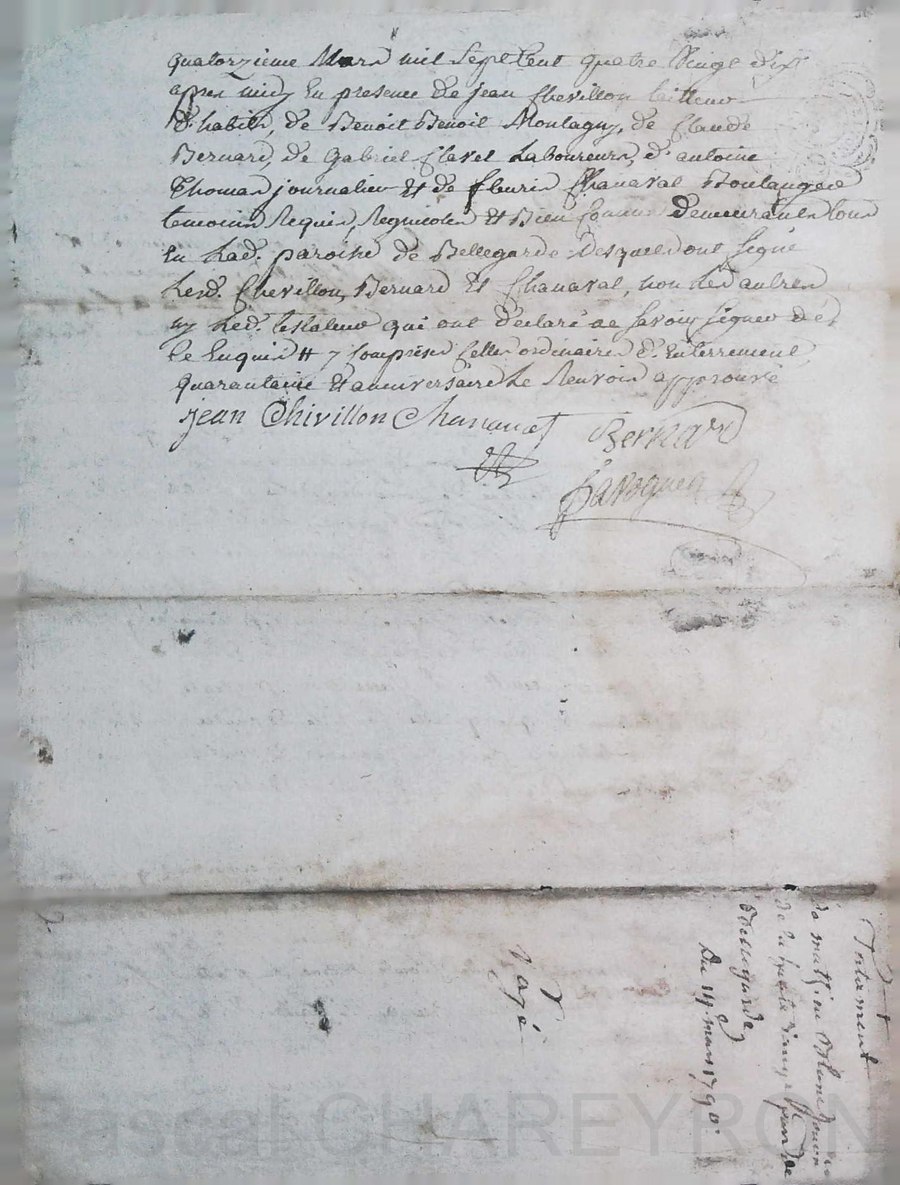 quatorzieme Mars mil Sept Cent quatre Vingt dix
apres midy En presence de jean Chevillon tailleur
d'habits, de Benoit Benoit Montagny, de Claude
Bernard, de Gabriel Clavel Laboureurs, d'antoine
Thomas journalier Et de fleuris Chanaval Boulangere
temoins Requis, Regnicoles Et Bien Connus demeurants tous
En Lad. paroisse de Bellegarde desquels ont signé
Lesd. Chevillon, Bernard Et Chanaval, non Les autres
ny Led. testateur qui ont déclaré ne savoir signer de
Ce Enquis # 7 Comprises Celles ordinaires d'Enterrement,
quarantaine Et anniversaire Le Renvois approuvé
jean Chivillon Chanavat Bernard
Testament
de mathieu Blanc
Bellegarde
Du 14 mars 1790.
Payé
Pascal CHAREYRON